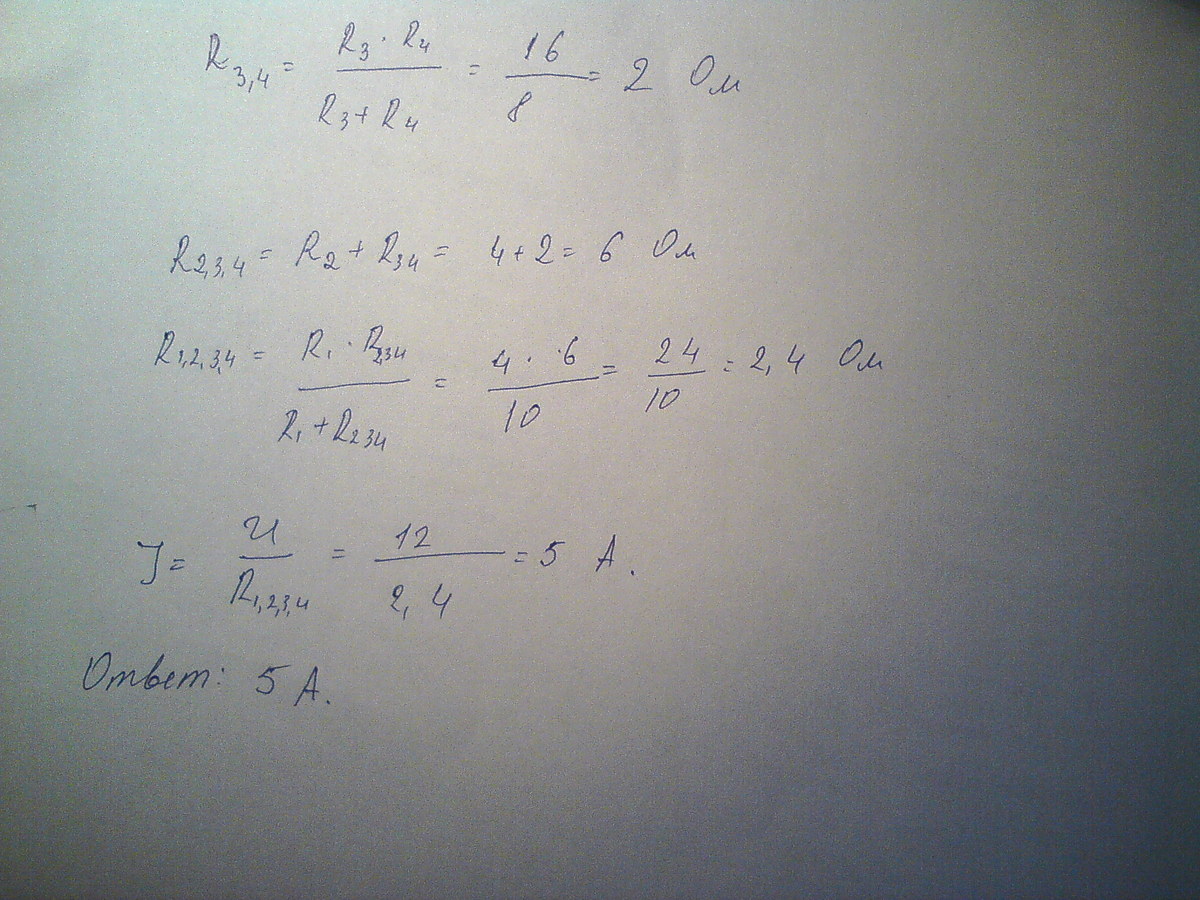 R3,4 = R3 · R4 / R3 + R4 = 16 / 8 = 2 Ом
R2,3,4 = R2 + R34 = 4 + 2 = 6 Ом
R1,2,3,4 = R1 · R234 / R1 + R234 = 4 · 6 / 10 = 24 / 10 = 2,4 Ом
J = U / R1,2,3,4 = 12 / 2,4 = 5 А.
Ответ: 5 А.